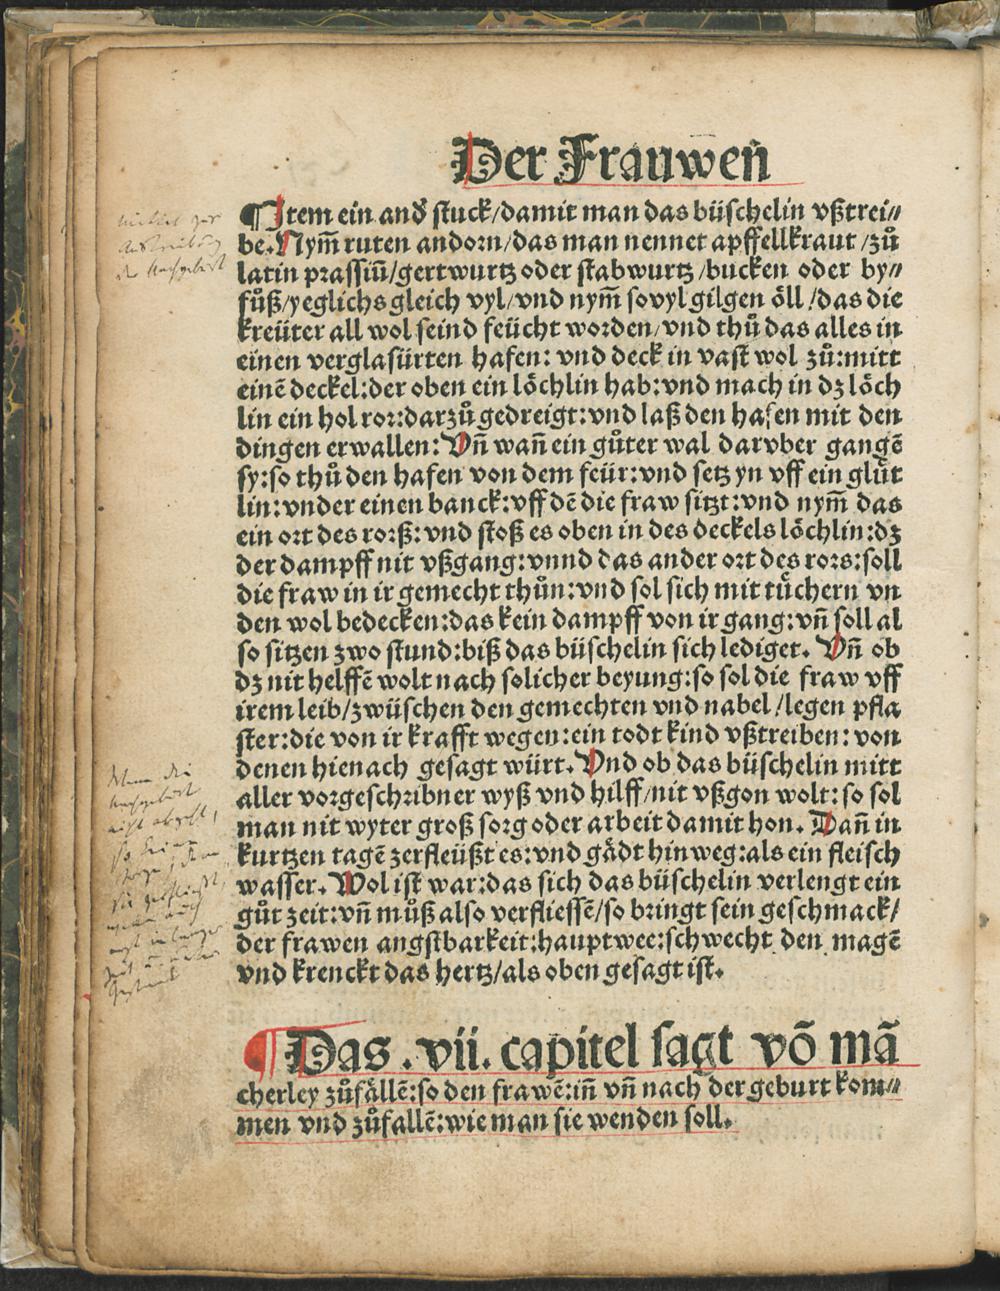 Der Frauwen̄
¶ Item ein and̓ stuck/damit man das büschelin vßtrei⸗
be. Nym̄ ruten andorn/das man nennet apffellkraut/zů
latin prassiū/gertwurtz oder stabwurtz/bucken oder by⸗
fůß/yeglichs gleich vyl/vnd nym̄ sovyl gilgen öll/das die
kreüter all wol seind feücht worden/vnd thů das alles in
einen verglasürten hafen: vnd deck in vast wol zů:mitt
einē deckel:der oben ein löchlin hab:vnd mach in dz löch
lin ein hol ror:darzů gedreigt:vnd laß den hafen mit den
dingen erwallen: Vn̄ wan̄ ein gůter wal darvber gangē
sy:so thů den hafen von dem feür:vnd setz yn vff ein glüt
lin:vnder einen banck:vff dē die fraw sitzt:vnd nym̄ das
ein ort des rorß:vnd stoß es oben in des deckels löchlin:dz
der dampff nit vßgang:vnnd das ander ort des rors:soll
die fraw in ir gemecht thůn:vnd sol sich mit tüchern vn
den wol bedecken:das kein dampff von ir gang:vn̄ soll al
so sitzen zwo stund:biß das büschelin sich lediget. Vn̄ ob
dz nit helffē wolt nach solicher beyung:so sol die fraw vff
irem leib/zwüschen den gemechten vnd nabel/legen pfla
ster:die von ir krafft wegen:ein todt kind vßtreiben:von
denen hienach gesagt würt. Vnd ob das büschelin mitt
aller vorgeschribner wyß vnd hilff/nit vßgon wolt:so sol
man nit wyter groß sorg oder arbeit damit hon. Dan̄ in
kurtzen tagē zerfleüßt es:vnd gädt hinweg:als ein fleisch
wasser. Wol ist war:das sich das büschelin verlengt ein
gůt zeit:vn̄ můß also verfliessē/so bringt sein geschmack/
der frawen angstbarkeit:hauptwee:schwecht den magē
vnd krenckt das hertz/als oben gesagt ist.
¶ Das .vii. capitel sagt vō mā
cherley zůfällē:so den frawē:in̄ vn̄ nach der geburt kom⸗
men vnd zůfallē:wie man sie wenden soll.